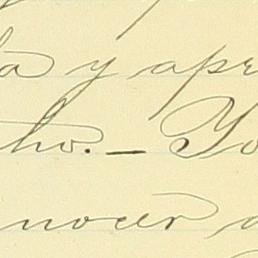 a y apr
ho. — Yo
nocer a